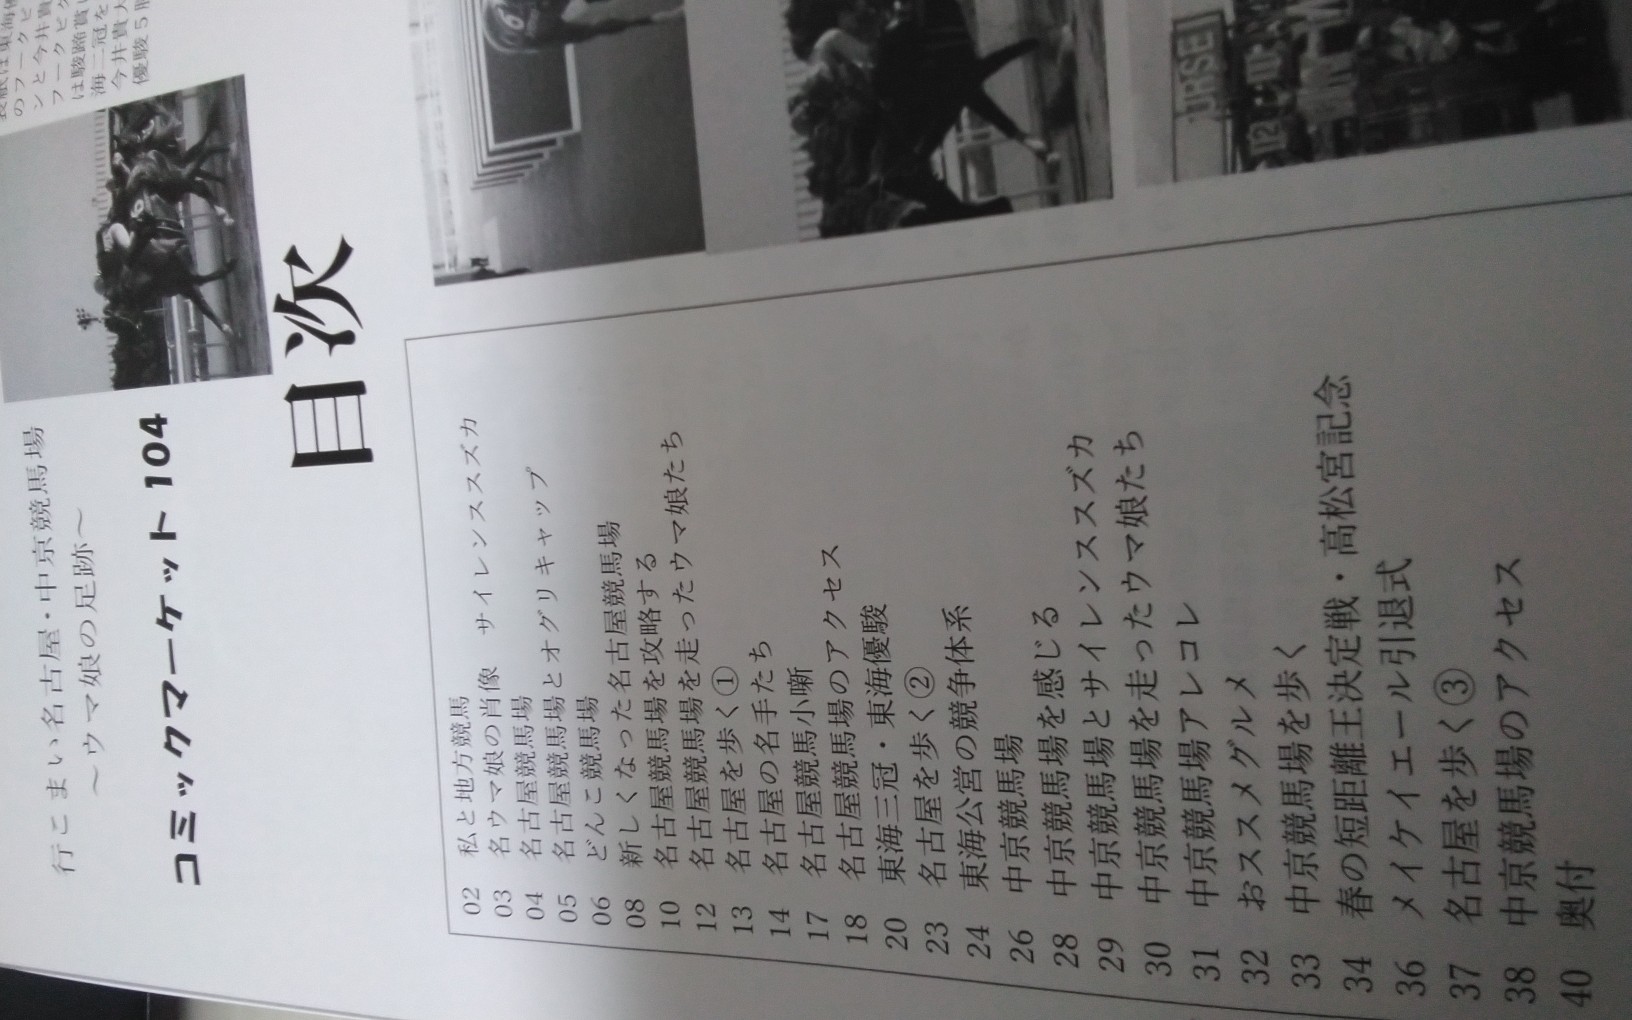 行こまい名古屋・中京競馬場
～ウマ娘の足跡～
コミックマーケット 104
のフークピ
ンと今井貴
フークピク
は駿蹄賞
海二冠を
今井貴大
優駿5
目次
02 私と地方競馬
03 名ウマ娘の肖像 サイレンススズカ
04 名古屋競馬場
05 名古屋競馬場とオグリキャップ
06 どんこ競馬場
08 新しくなった名古屋競馬場
10 名古屋競馬場を攻略する
12 名古屋競馬場を走ったウマ娘たち
13 名古屋を歩く①
14 名古屋の名手たち
17 名古屋競馬小噺
18 名古屋競馬場のアクセス
20 東海三冠・東海優駿
23 名古屋を歩く②
24 東海公営の競争体系
26 中京競馬場
28 中京競馬場を感じる
29 中京競馬場とサイレンススズカ
30 中京競馬場を走ったウマ娘たち
31 中京競馬場アレコレ
32 おススメグルメ
33 中京競馬場を歩く
34 春の短距離王決定戦・高松宮記念
36 メイケイエール引退式
37 名古屋を歩く③
38 中京競馬場のアクセス
40 奥付